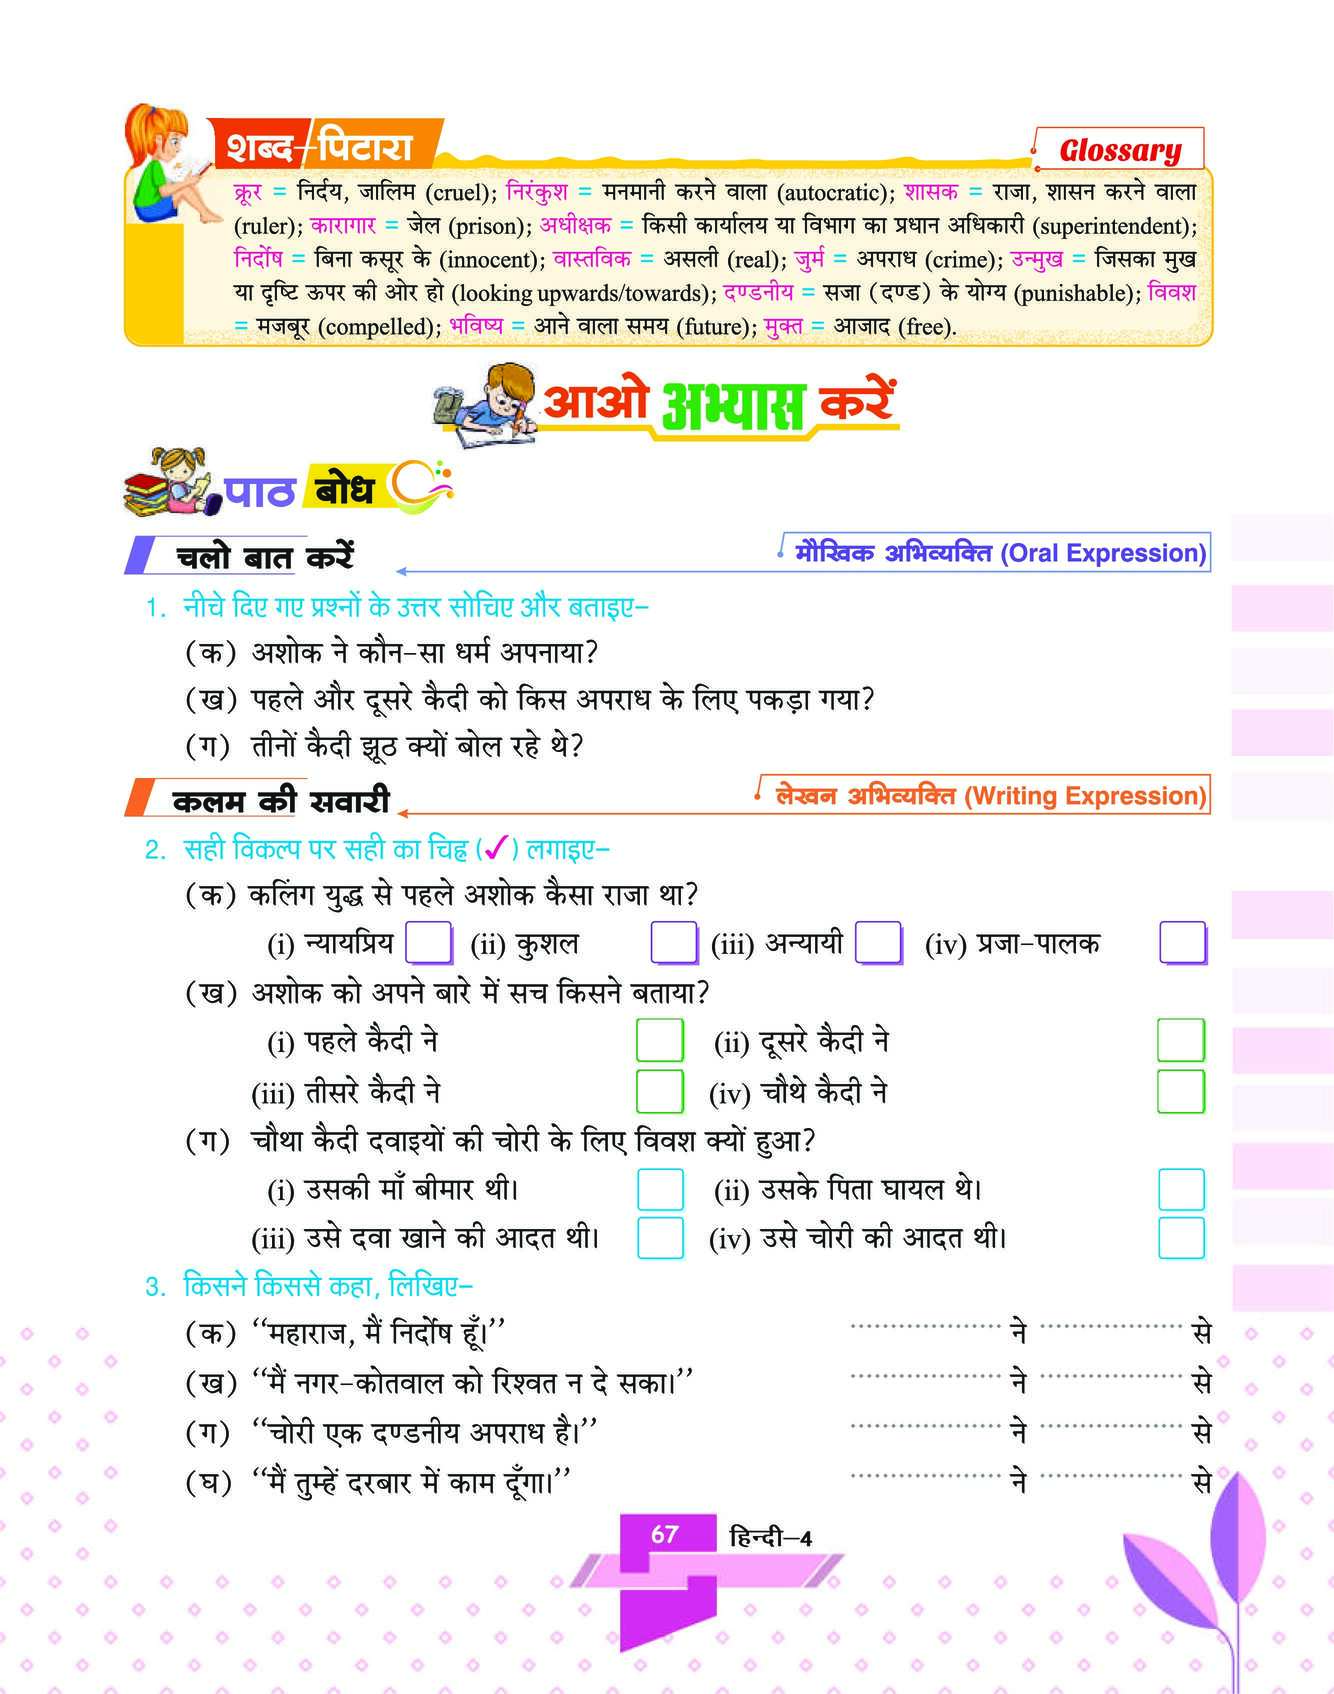 शब्द-पिटारा
Glossary
क्रूर = निर्दय, जालिम (cruel); निरंकुश = मनमानी करने वाला (autocratic); शासक = राजा, शासन करने वाला
(ruler); कारागार = जेल (prison); अधीक्षक = किसी कार्यालय या विभाग का प्रधान अधिकारी (superintendent);
निर्दोष = बिना कसूर के (innocent); वास्तविक = असली (real); जुर्म = अपराध (crime); उन्मुख = जिसका मुख
या दृष्टि ऊपर की ओर हो (looking upwards/towards); दण्डनीय = सजा (दण्ड) के योग्य (punishable); विवश
= मजबूर (compelled); भविष्य = आने वाला समय (future); मुक्त = आजाद (free).
आओ अभ्यास करें
पाठ बोध
चलो बात करें मौखिक अभिव्यक्ति (Oral Expression)
1. नीचे दिए गए प्रश्नों के उत्तर सोचिए और बताइए–
(क) अशोक ने कौन-सा धर्म अपनाया?
(ख) पहले और दूसरे कैदी को किस अपराध के लिए पकड़ा गया?
(ग) तीनों कैदी झूठ क्यों बोल रहे थे?
कलम की सवारी लेखन अभिव्यक्ति (Writing Expression)
2. सही विकल्प पर सही का चिह्न (✓) लगाइए–
(क) कलिंग युद्ध से पहले अशोक कैसा राजा था?
(i) न्यायप्रिय (ii) कुशल (iii) अन्यायी (iv) प्रजा-पालक
(ख) अशोक को अपने बारे में सच किसने बताया?
(i) पहले कैदी ने (ii) दूसरे कैदी ने
(iii) तीसरे कैदी ने (iv) चौथे कैदी ने
(ग) चौथा कैदी दवाइयों की चोरी के लिए विवश क्यों हुआ?
(i) उसकी माँ बीमार थी। (ii) उसके पिता घायल थे।
(iii) उसे दवा खाने की आदत थी। (iv) उसे चोरी की आदत थी।
3. किसने किससे कहा, लिखिए–
(क) ‘‘महाराज, मैं निर्दोष हूँ।’’ ................... ने .................. से
(ख) ‘‘मैं नगर-कोतवाल को रिश्वत न दे सका।’’ ................... ने .................. से
(ग) ‘‘चोरी एक दण्डनीय अपराध है।’’ ................... ने .................. से
(घ) ‘‘मैं तुम्हें दरबार में काम दूँगा।’’ ................... ने .................. से
67 हिन्दी–4